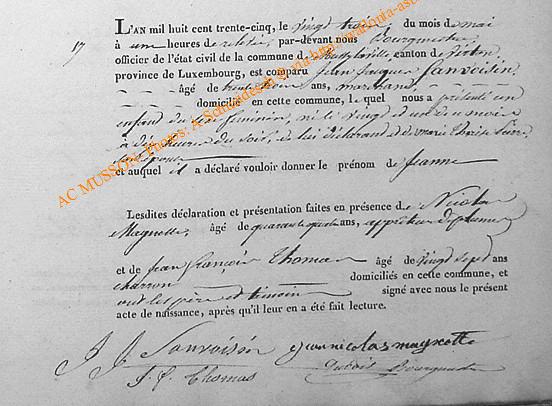 17
L'AN mil huit cent trente-cinq, le vingt trois du mois de mai
à une heures de relevée, par-devant nous Bourgmestre
officier de l'état civil de la commune de canton de Virton,
province de Luxembourg, est comparu Jean Jacques Sanvoisin,
âgé de ans, marchand,
domicilié en cette commune, lequel nous a présenté un
enfant du sexe féminin, né le vingt et un de ce mois
à heures du soir, de lui déclarant et de marie
son épouse
et auquel il a déclaré vouloir donner le prénom de Jeanne
Lesdites déclaration et présentation faites en présence de Nicolas
Magnette, âgé de quarante quatre ans,
et de Jean françois Thomas âgé de vingt sept ans
charron domiciliés en cette commune, et
ont les père et témoin signé avec nous le présent
acte de naissance, après qu'il leur en a été fait lecture.
J J Sanvoisin jean nicolas magnette
J. f. Thomas Dubois Bourgmestre
AC MUSSON, Photos: A. Schmades